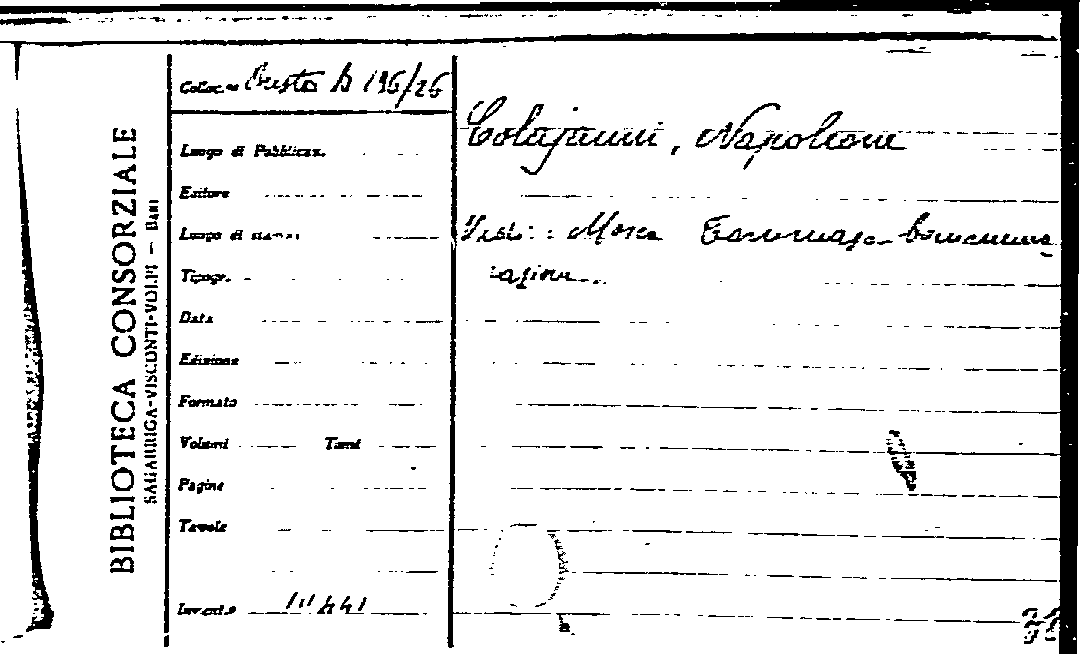 BIBLIOTECA CONSORZIALE
SAGARRIGA-VISCONTI-VOLPI - BARI
Colloc.ne Busta B 196/26
Luogo di Pubblicaz.
Editore
Luogo di stampa
Tipogr.
Data
Edizione
Formato
Volumi Tomi
Pagine
Tavole
Inventario
Colajanni, Napoleone
Vedi: Mosca Tommaso